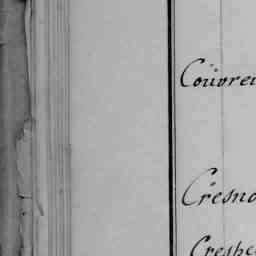 Coüvreu
Cresno
Crespe